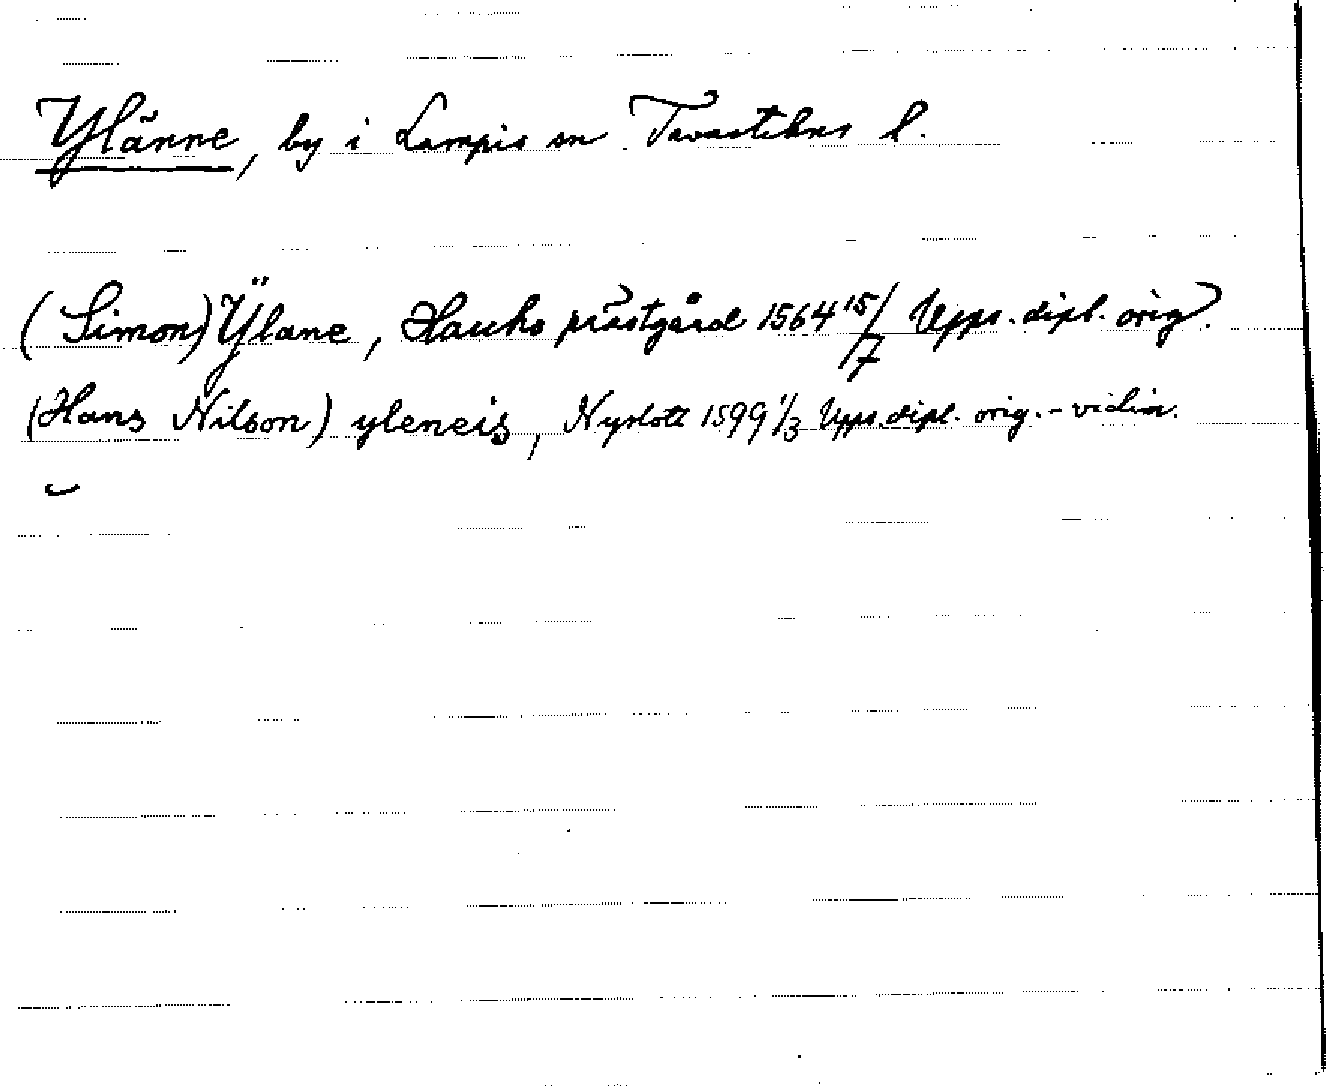 Ylänne, by i Lampis sn Tavastehus l.
(Simon) Ÿlane, Hauho prästgård 1564 15/7 Upps. dipl. orig.
(Hans Nilson) yleneis, Nyslott 1599 1/3 Upps. dipl. orig. - vidim.